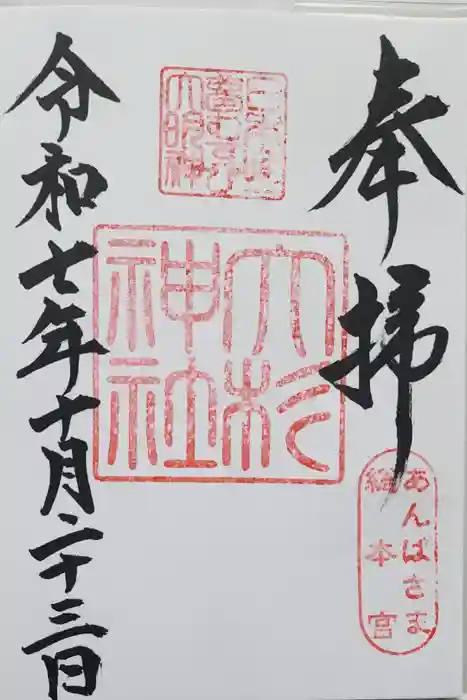 奉拝
あんばさま
総本宮
大杉
神社
大明神
令和七年十月二十三日